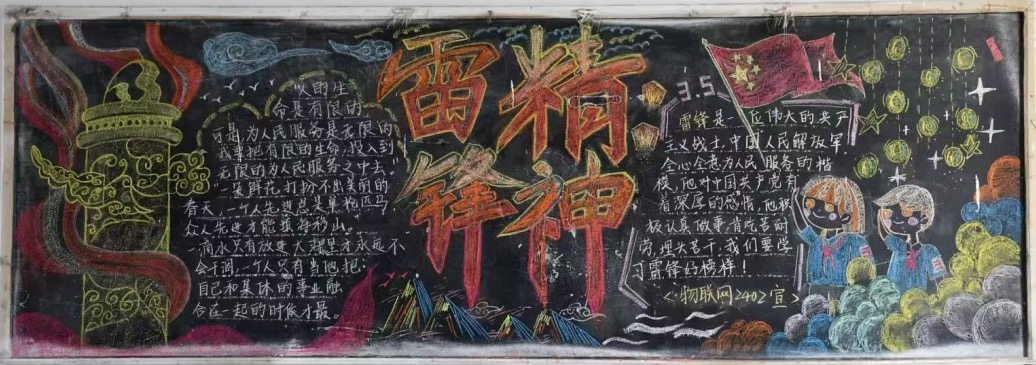 人的生
命是有限的
可是为人民服务是无限的
我要把有限的生命,投入到
无限的为人民服务之中去。
一朵鲜花打扮不出美丽的
春天,一个人先进总是单枪匹马
众人先进才能移山。
一滴水只有放进大海里才永远不
会干涸,一个人只有当他把
自己和集体的事业融
合在一起的时候才最。
雷锋
精神
3.5
雷锋是一位伟大的共产
主义战士,中国人民解放军,
全心全意为人民服务的楷
模,他对中国共产党有
着深厚的感情,他积
极认真做事,肯吃苦耐
劳,埋头苦干,我们要学
习雷锋好榜样!
<物联网2402宣>